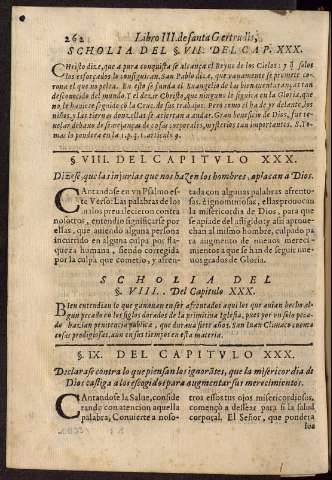 262 Libro III. de santa Gertrudis,
SCHOLIA DEL §. VII. DEL CAP. XXX.
CHristo dize, que a pura conquista se alcança el Reyno de los Cielos: y q̃ solos
los esforçados lo consiguiran. San Pablo dize, que vanamente se promete co-
rona el que no pelea. En esto se funda el Euangelio de las bienauenturanças tan
desconocido del mundo. Y el de Christo, que ninguno le seguira en la Gloria, que
no le huuiere seguido cõ la Cruz de sus trabajos. Pero como el ha de yr delante, los
niños, y las tiernas donzellas se aciertan a andar. Gran beneficio de Dios, sue te-
ner debaxo de semejanças de cosas corporales, mysterios tan importantes. S. To-
mas lo pondera en la 1. p. q. 1. articulo 9.
§ VIII. DEL CAPITVLO XXX.
Dizese, que las injurias que nos hazen los hombres, aplacan a Dios.
CAntandose en vn Psalmo es-
te Verso: Las palabras de los
malos preualecieron contra
nosotros, entendio significarse por
ellas, que auiendo alguna persona
incurrido en alguna culpa por fla-
queza humana, siendo corregida
por la culpa que cometio, y afren-
tada con algunas palabras afrento-
sas, è ignominiosas, ellas prouocan
la misericordia de Dios, para que
se apiade del afligido; assi aproue-
chan al mismo hombre, culpado pa-
ra augmento de nueuos mereci-
mientos a que se han de seguir nue-
uos grados de Gloria.
SCHOLIA DEL
§. VIII. Del Capitulo XXX.
BIen entendian lo que ganauan en ser afrentados aquellos que auian hecho al-
gun pecado en los siglos dorados de la primitiua Iglesia, pues por vn solo peca-
do hazian penitencia publica, que duraua siete años. San Iuan Climaco cuenta
cosas prodigiosas, aun en sus tiempos en esta materia.
§. IX. DEL CAPITVLO XXX.
Declarase contra lo que piensan los ignorãtes, que la misericordia de
Dios castiga a los escogidos para augmentar sus merecimientos.
CAntandose la Salue, conside
rando con atencion aquella
palabra, Conuierte a noso-
tros essos tus ojos misericordiosos,
començò a dessear para si la salud
corporal. El Señor, que pondera
los